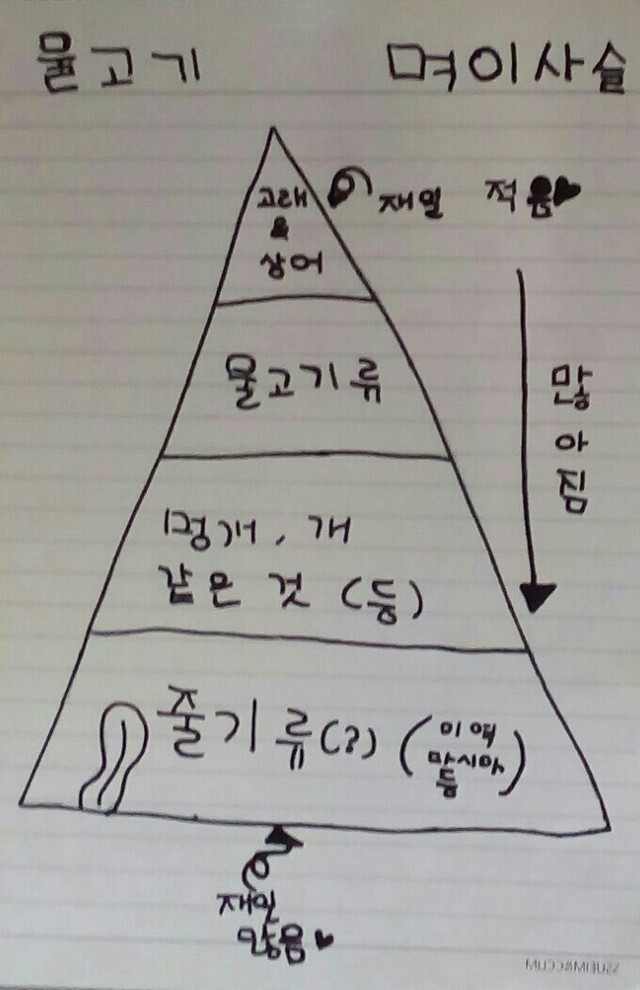 물고기 먹이사슬
고래
&
상어
재일 적음♥
물고기류
많아짐
멍게, 개
같은 것 (등)
줄기류(?) (미역
마시아
등)
재일
많음♥